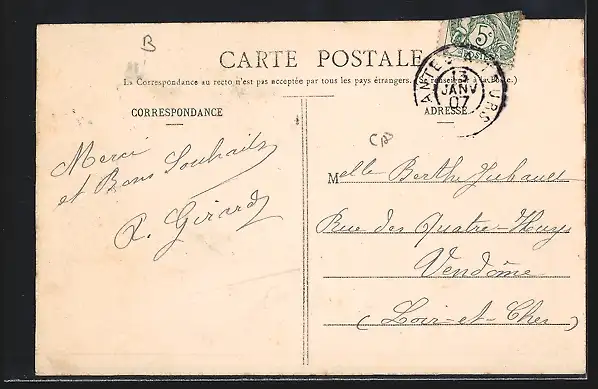 B
CARTE POSTALE
5c
(La Correspondance au recto n'est pas acceptée par tous les pays étrangers.
13
JANV
07
CORRESPONDANCE
ADRESSE
Merci
et Bons Souhaits
R. Girard
Melle Berthe Jubault
Rue des Quatre-Huys
Vendôme
(Loir-et-Cher)